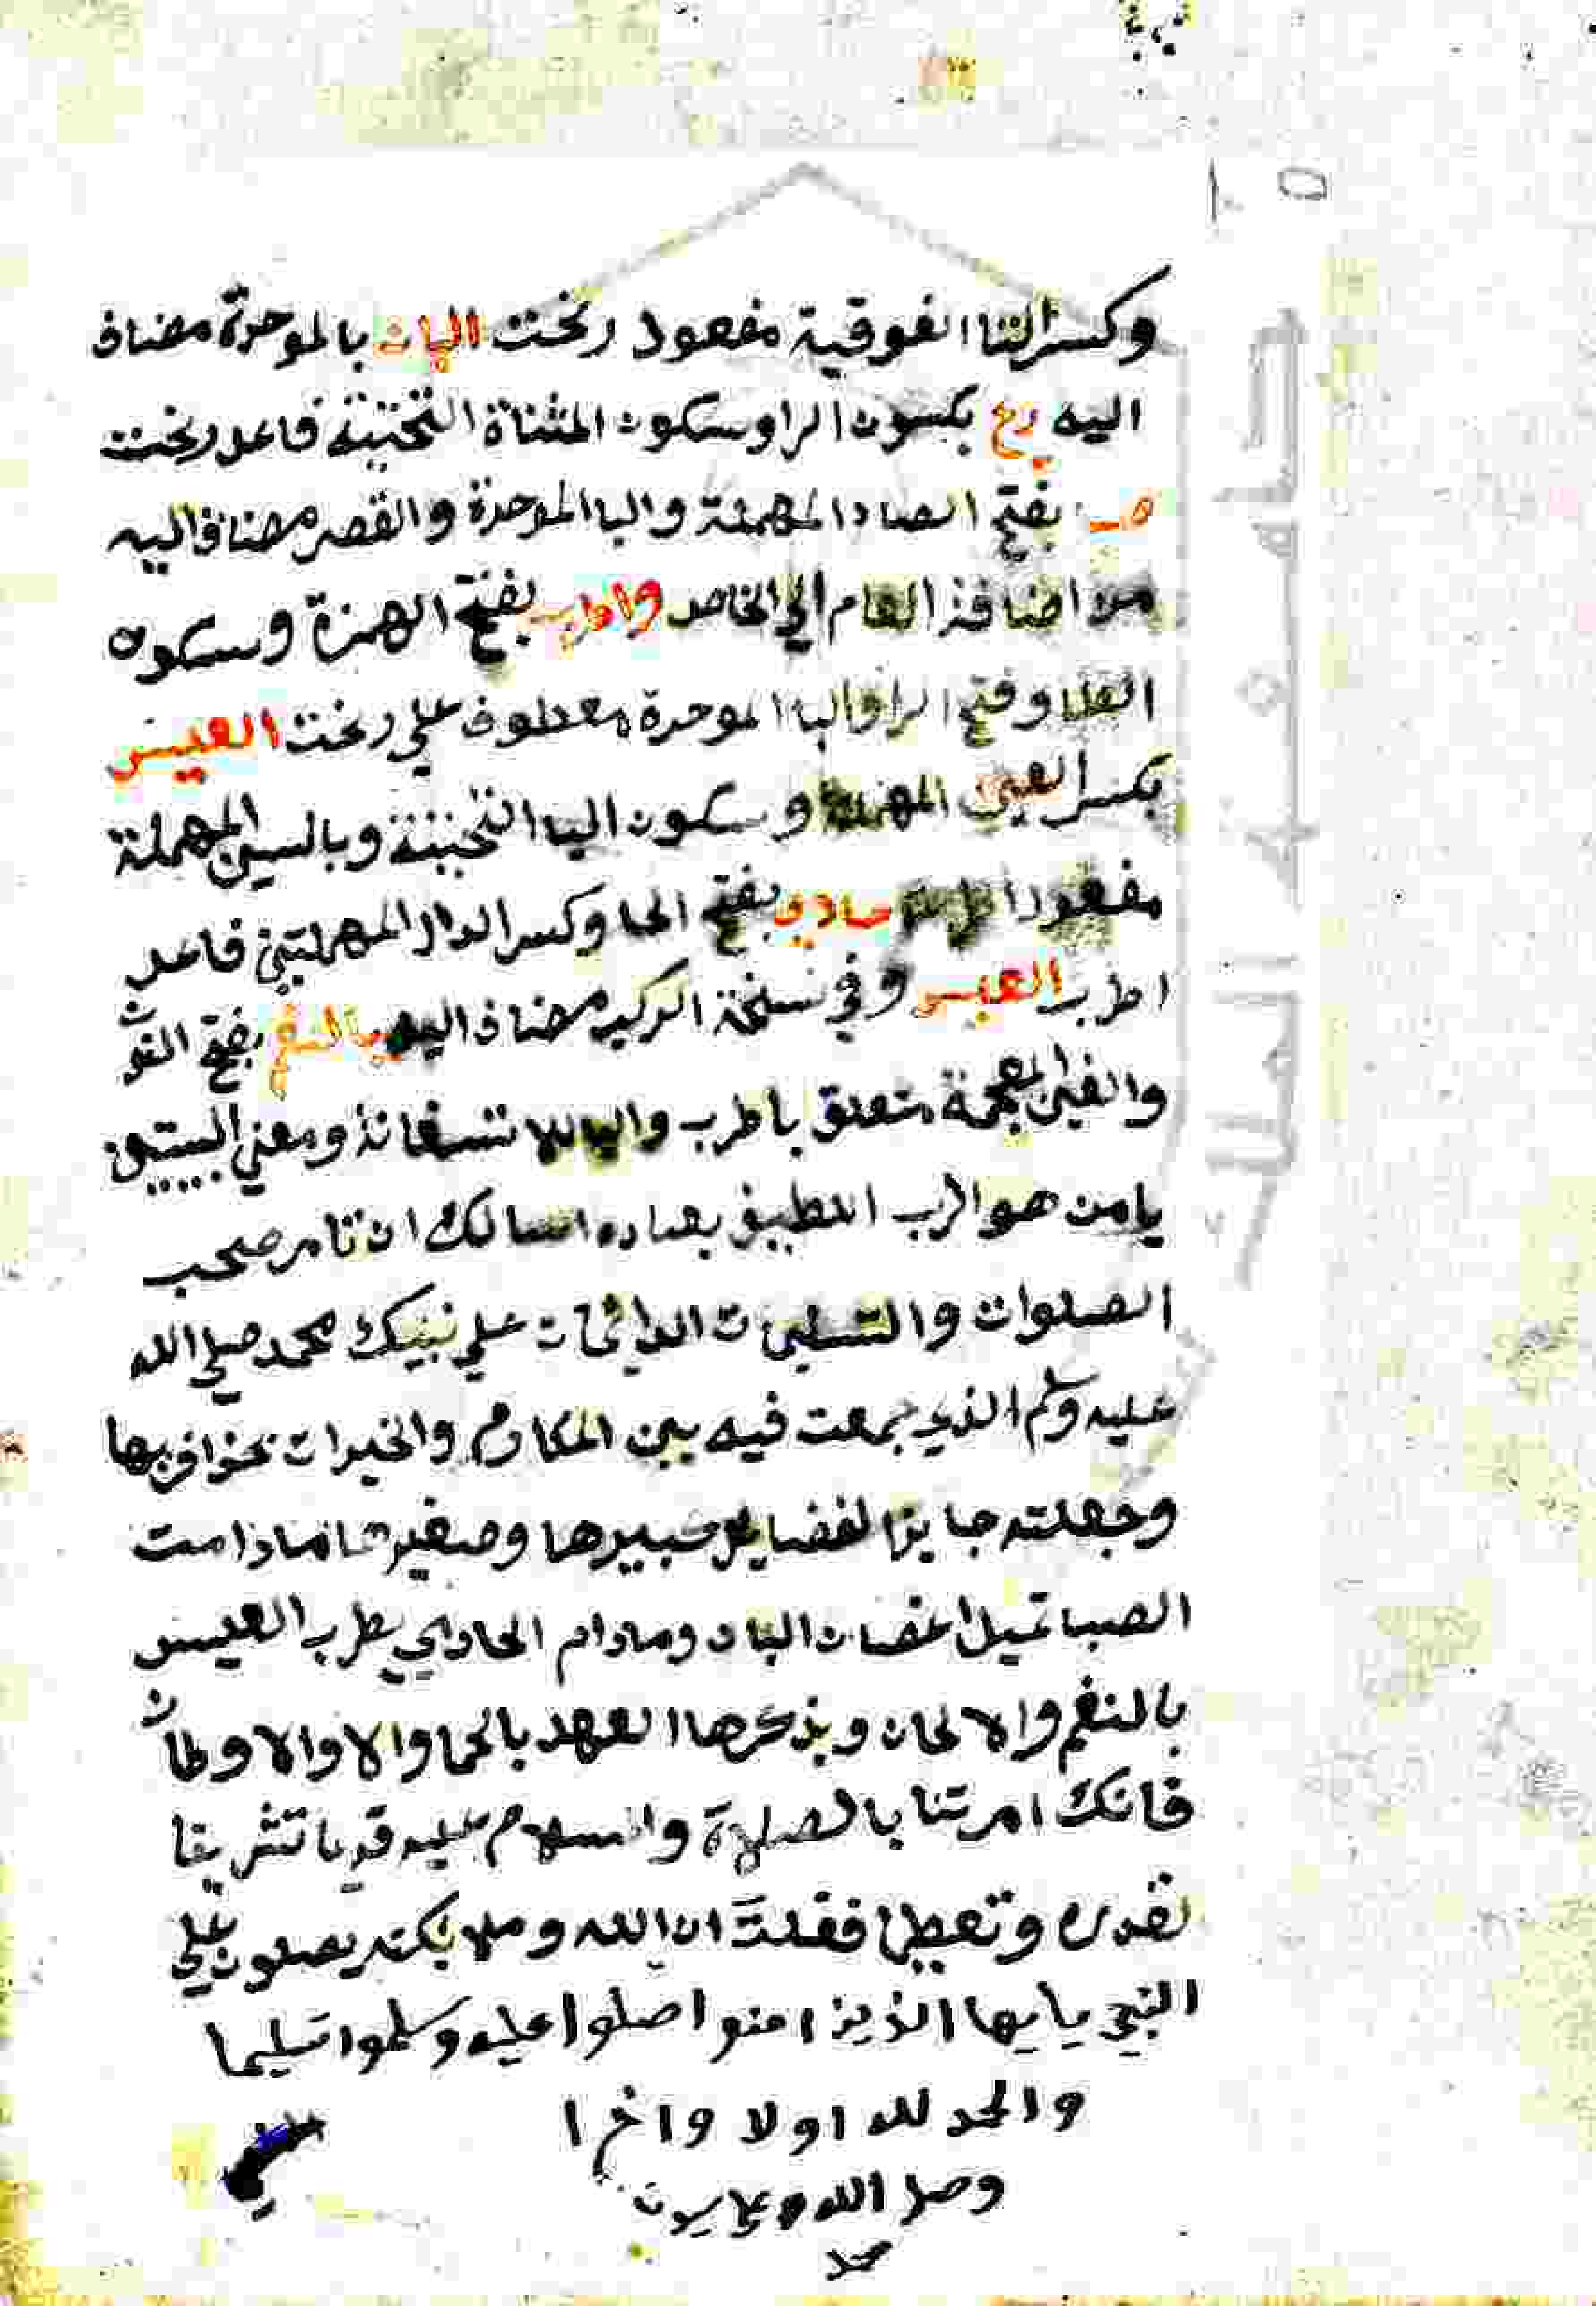 وكسر التا الفوقية مفعول رنحت البان بالموحدة مضاف
اليه ريح بكسون الرا وسكون المثناة التحتية فاعل رنحت
صبا بفتح الصاد المهملة والبا الموحدة والقصر مضاف اليه
من اضافة العام الي الخاص واطرب بفتح الهمزة وسكون
الطا وفتح الرا والبا الموحدة معطوف علي رنحت العيس
بكسر العين المهملة وسكون اليا التحتية وبالسين المهملة
مفعول اطرب حادي بفتح الحا وكسر الدال المهملتين فاعل
اطرب العيس وفي نسخة الركب مضاف اليه بالنغم بفتح النون
والغين المعجمة متعلق باطرب والبا للاستعانة ومعني البيتين
يا من هو الرب اللطيف بعباده اسالك ان تامر صحب
الصلوات والتسليمات الدائمات علي نبيك محمد صلي الله
عليه وسلم الذي جمعت فيه بين المكارم والخيرات بحذافيرها
وجعلته حايز الفضايل كبيرها وصغيرها مادامت
الصبا تميل اغصان البان ومادام الحادي يطرب العيس
بالنغم والالحان ويذكرها العهد بالحما والا والاوطان
فانك امرتنا بالصلاة والسلام عليه قديما تشريفا
لقدره وتعظيما فقلت ان الله وملايكته يصلون علي
النبي يايها الذين امنوا صلوا عليه وسلموا تسليما
والحمد لله اولا واخرا
وصل الله علي
محمد